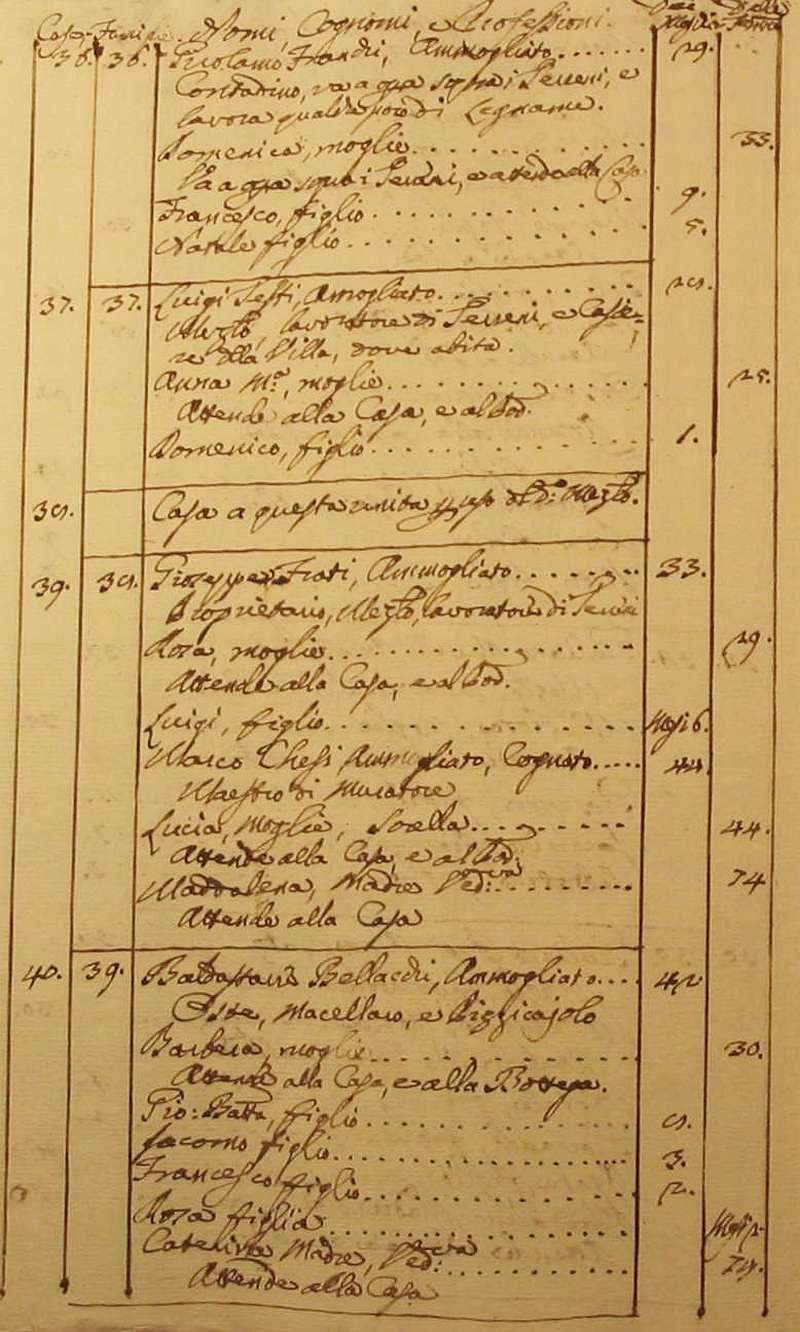 Case. Famiglie. Nomi, Cognomi, e Professioni. Dei Maschi Delle Femine
36. 36. Girolamo Franchi, Ammogliato....... 29.
Contadino, va a opra sopra i Terreni, e
lavora qualche poco di Legname.
Domenica, moglie............ 33.
Va a opra sopra i Terreni, e attende alla Casa
Francesco, figlio........... 9.
Natale figlio............ 5.
37. 37. Luigi Testi, Amogliato..........
Mezzo, lavoratore di Terreni, e Casie=
re della Villa, dove abita.
Anna Ma, moglie............ 25.
Attende alla Casa, e al Pod.
Domenico, figlio............ 1.
38. Casa a questa unita
39. 38. Giuseppe Frati, Ammogliato........ 33.
Proprietario, lavoratore di Terreni
Rosa, moglie............ 29.
Attende alla Casa, e al Pod.
Luigi, figlio............ Mesi 6.
Marco Chesi, Ammogliato, Cognato..... 44.
Maestro di Muratore
Lucia, Moglie, Sorella......... 44.
Attende alla Casa, e al Pod.
Maddalena, Madre Ved:va......... 74
Attende alla Casa
40. 39. Baldassarre Bellacchi, Ammogliato.... 42
Oste, Macellaro, e Pizzicajolo
Barbera, moglie............ 30.
Attende alla Casa, e alla Bottega.
Gio: Batta, figlio............ 8.
Jacomo figlio............ 3.
Francesco figlio............ 2.
Rosa figlia............ Mesi
Caterina Madre, Ved:va......... 78.
Attende alla Casa